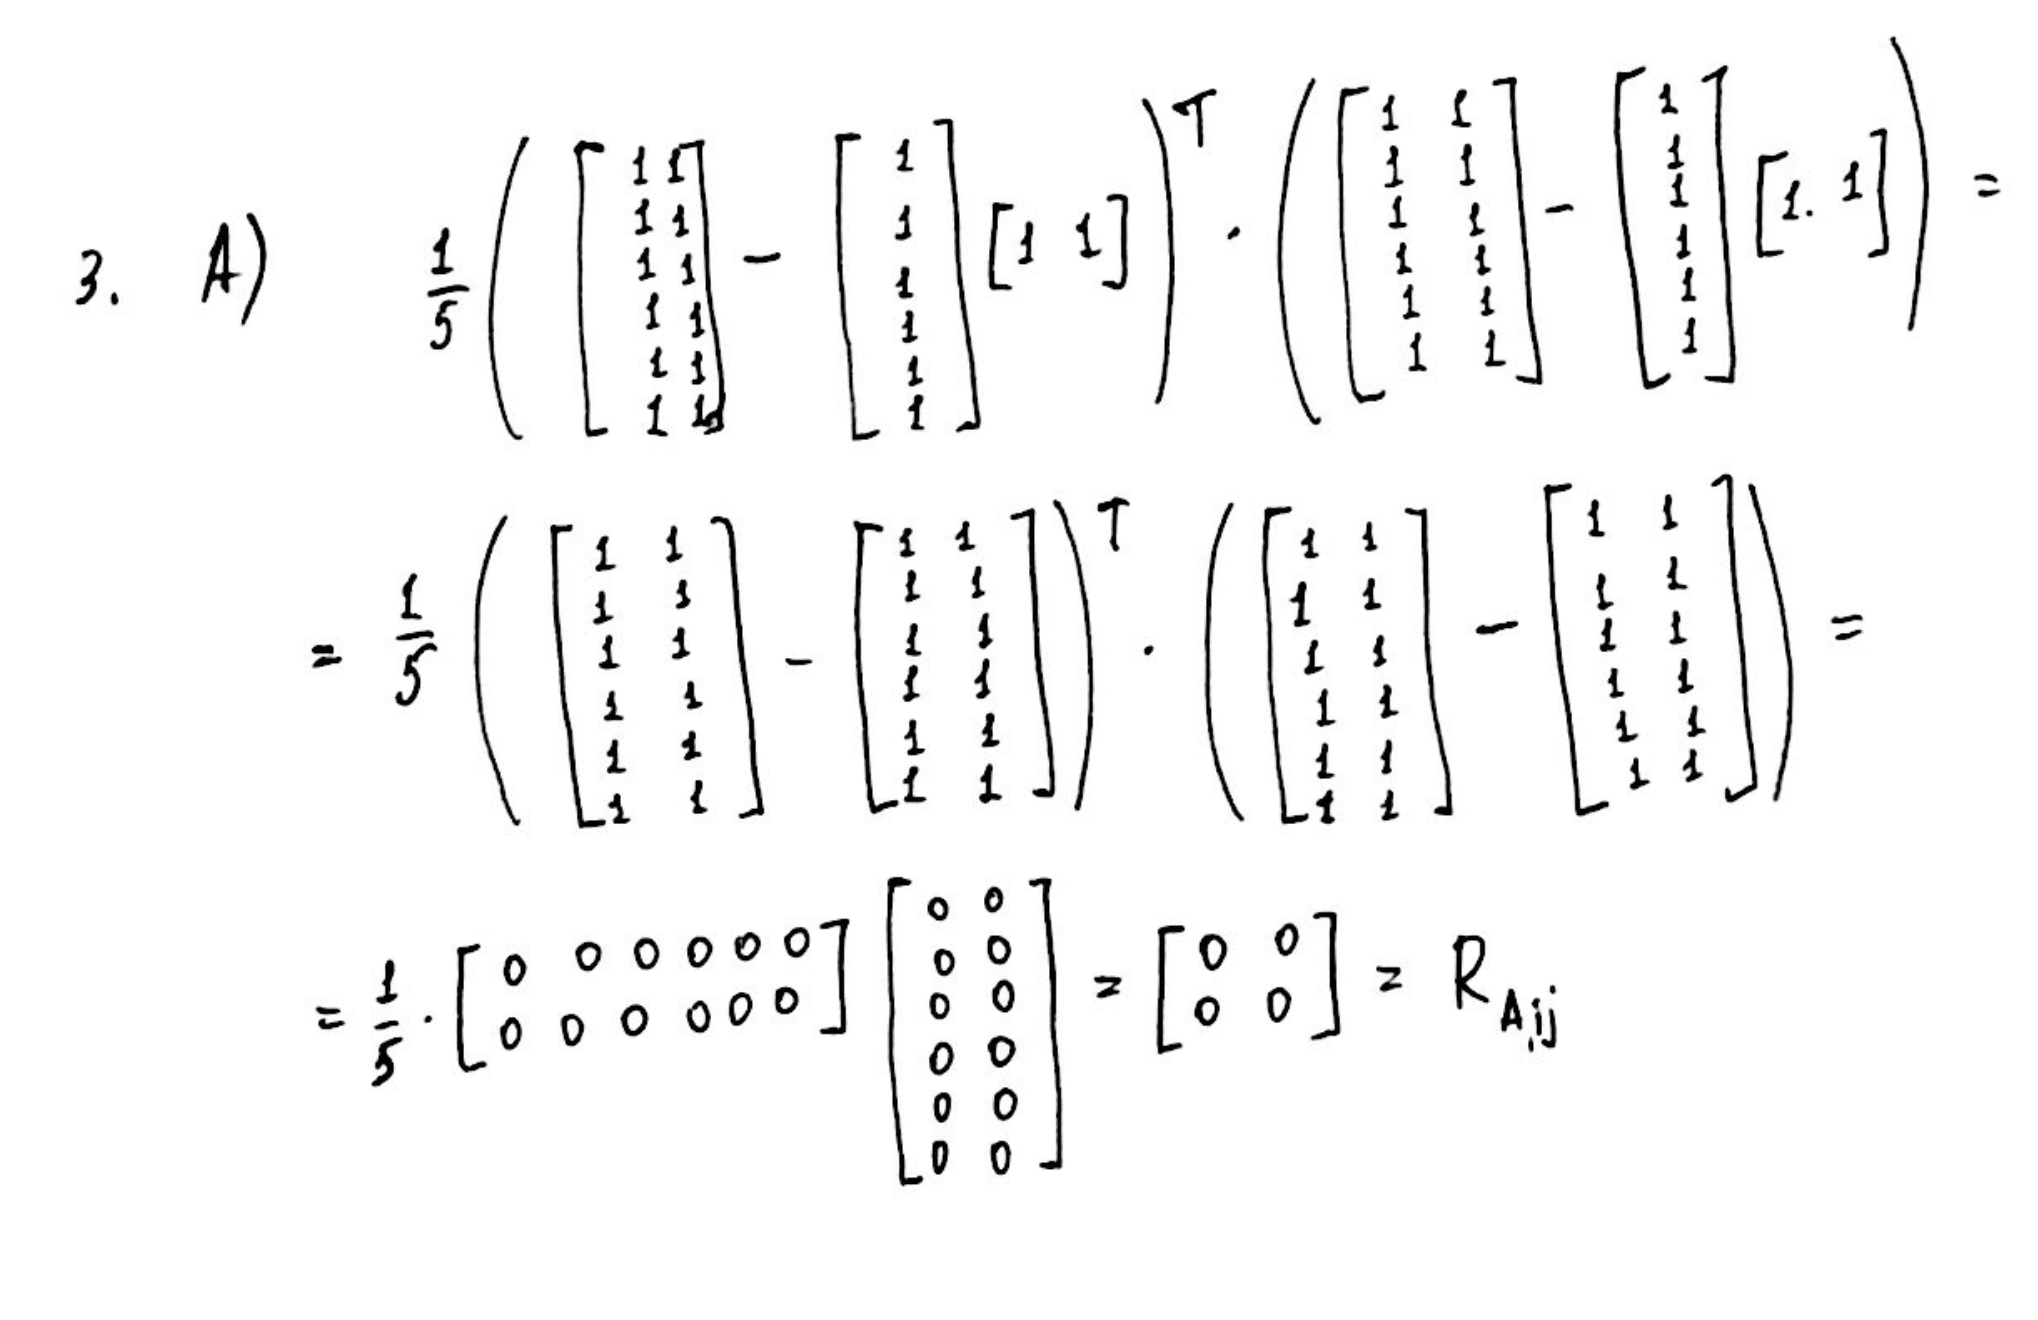 3. A) \frac{1}{5} \left( \begin{bmatrix} 1 & 1 \\ 1 & 1 \\ 1 & 1 \\ 1 & 1 \\ 1 & 1 \\ 1 & 1 \end{bmatrix} - \begin{bmatrix} 1 \\ 1 \\ 1 \\ 1 \\ 1 \\ 1 \end{bmatrix} [1 \ 1] \right)^T \cdot \left( \begin{bmatrix} 1 & 1 \\ 1 & 1 \\ 1 & 1 \\ 1 & 1 \\ 1 & 1 \\ 1 & 1 \end{bmatrix} - \begin{bmatrix} 1 \\ 1 \\ 1 \\ 1 \\ 1 \\ 1 \end{bmatrix} [1. \ 1] \right) =
= \frac{1}{5} \left( \begin{bmatrix} 1 & 1 \\ 1 & 1 \\ 1 & 1 \\ 1 & 1 \\ 1 & 1 \\ 1 & 1 \end{bmatrix} - \begin{bmatrix} 1 & 1 \\ 1 & 1 \\ 1 & 1 \\ 1 & 1 \\ 1 & 1 \\ 1 & 1 \end{bmatrix} \right)^T \cdot \left( \begin{bmatrix} 1 & 1 \\ 1 & 1 \\ 1 & 1 \\ 1 & 1 \\ 1 & 1 \\ 1 & 1 \end{bmatrix} - \begin{bmatrix} 1 & 1 \\ 1 & 1 \\ 1 & 1 \\ 1 & 1 \\ 1 & 1 \\ 1 & 1 \end{bmatrix} \right) =
= \frac{1}{5} \cdot \begin{bmatrix} 0 & 0 & 0 & 0 & 0 & 0 \\ 0 & 0 & 0 & 0 & 0 & 0 \end{bmatrix} \begin{bmatrix} 0 & 0 \\ 0 & 0 \\ 0 & 0 \\ 0 & 0 \\ 0 & 0 \\ 0 & 0 \end{bmatrix} = \begin{bmatrix} 0 & 0 \\ 0 & 0 \end{bmatrix} = R_{A,ij}